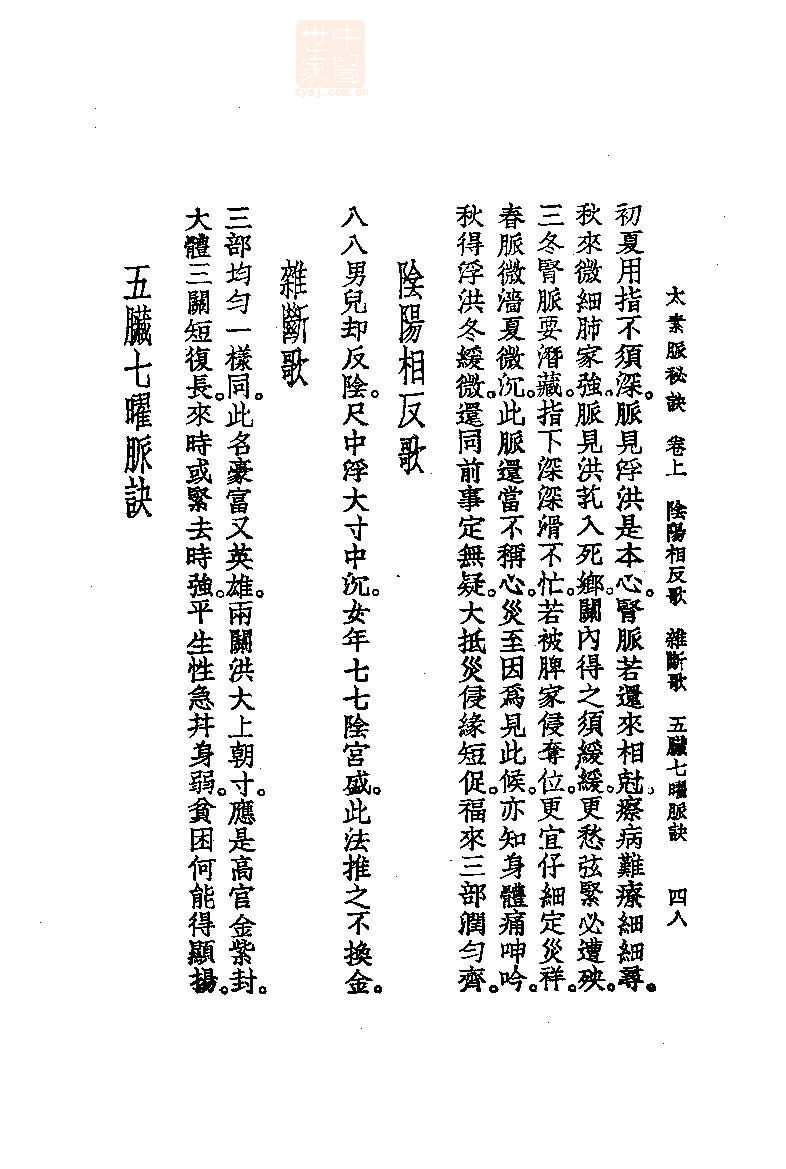 中醫世家
zysj.com.cn
太素脈秘訣　卷上　陰陽相反歌　雜斷歌　五臟七曜脈訣　四八
初夏用指不須深。脈見浮洪是本心。腎脈若還來相尅。療病難療細細尋。
秋來微細肺家強。脈見洪芤入死鄉。關內得之須緩緩。更愁弦緊必遭殃。
三冬腎脈要潛藏。指下深深滑不忙。若被脾家侵奪位。更宜仔細定災祥。
春脈微濇夏微沉。此脈還當不稱心。災至因爲見此候。亦知身體痛呻吟。
秋得浮洪冬緩微。還同前事定無疑。大抵災侵緣短促。福來三部潤勻齊。
陰陽相反歌
八八男兒却反陰。尺中浮大寸中沉。女年七七陰宮盛。此法推之不換金。
雜斷歌
三部均勻一樣同。此名豪富又英雄。兩關洪大上朝寸。應是高官金紫封。
大體三關短復長。來時或緊去時強。平生性急幷身弱。貧困何能得顯揚。
五臟七曜脈訣